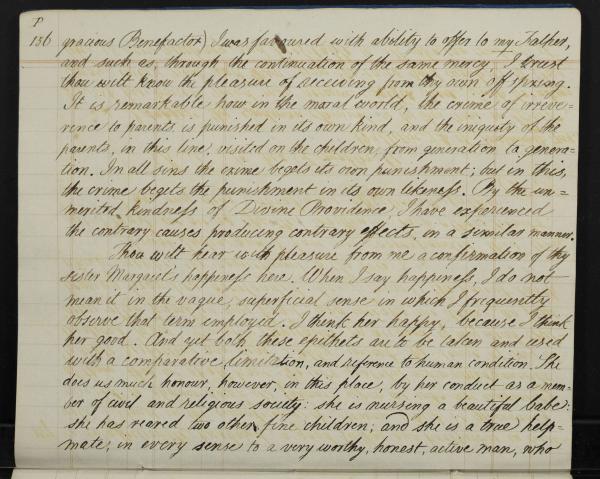 P
136
gracious Benefactor) I was favoured with ability to offer to my Father,
and such as, through the continuation of the same mercy, I trust
thou wilt know the pleasure of receiving from thy own offspring.
It is remarkable how in the moral world, the crime of irreve=
rence to parents is punished in its own kind, and the iniquity of the
parents, in this line, visited on the children from generation to genera=
tion. In all sins the crime begets its own punishment; but in this,
the crime begets the punishment in its own likeness. By the un=
merited kindness of Divine Providence, I have experienced
the contrary causes producing contrary effects, in a similar manner.
Thou wilt hear with pleasure from me a confirmation of thy
sister Margaret's happiness here. When I say happiness, I do not
mean it in the vague, superficial sense in which I frequently
observe that term employed. I think her happy, because I think
her good. And yet both these epithets are to be taken and used
with a comparative limitation, and reference to human condition. She
does us much honour, however, in this place, by her conduct as a mem=
ber of civil and religious society: she is nursing a beautiful babe:
she has reared two other fine children; and she is a true help=
mate, in every sense to a very worthy, honest, active man, who